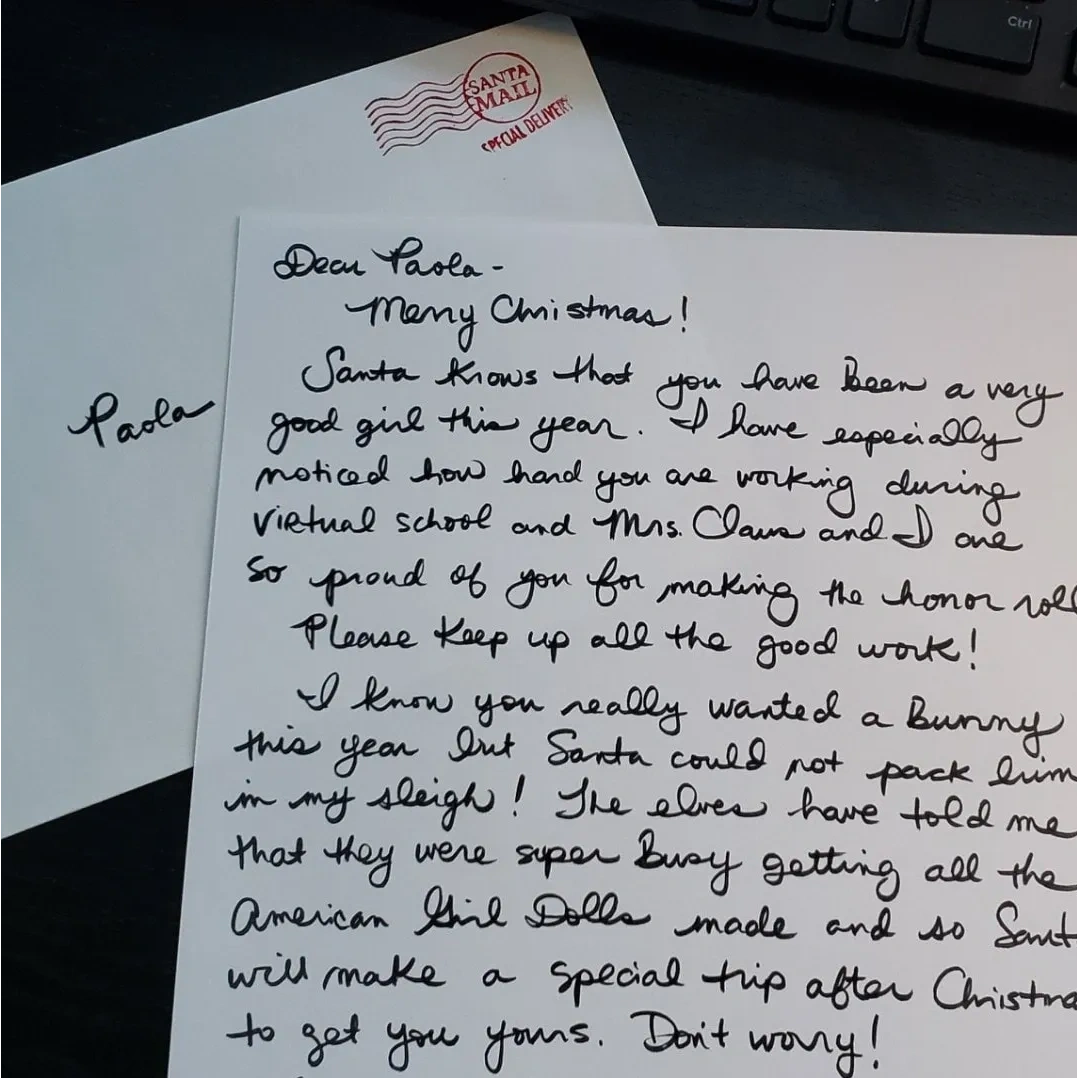 Ctrl
SANTA
MAIL
SPECIAL DELIVERY
Paola
Dear Paola-
Merry Christmas!
Santa knows that you have been a very
good girl this year. I have especially
noticed how hard you are working during
virtual school and Mrs. Claus and I are
so proud of you for making the honor roll
Please keep up all the good work!
I know you really wanted a Bunny
this year but Santa could not pack him
in my sleigh! The elves have told me
that they were super Busy getting all the
American Girl Dolls made and so Sant
will make a special trip after Christma
to get you yours. Don't worry!